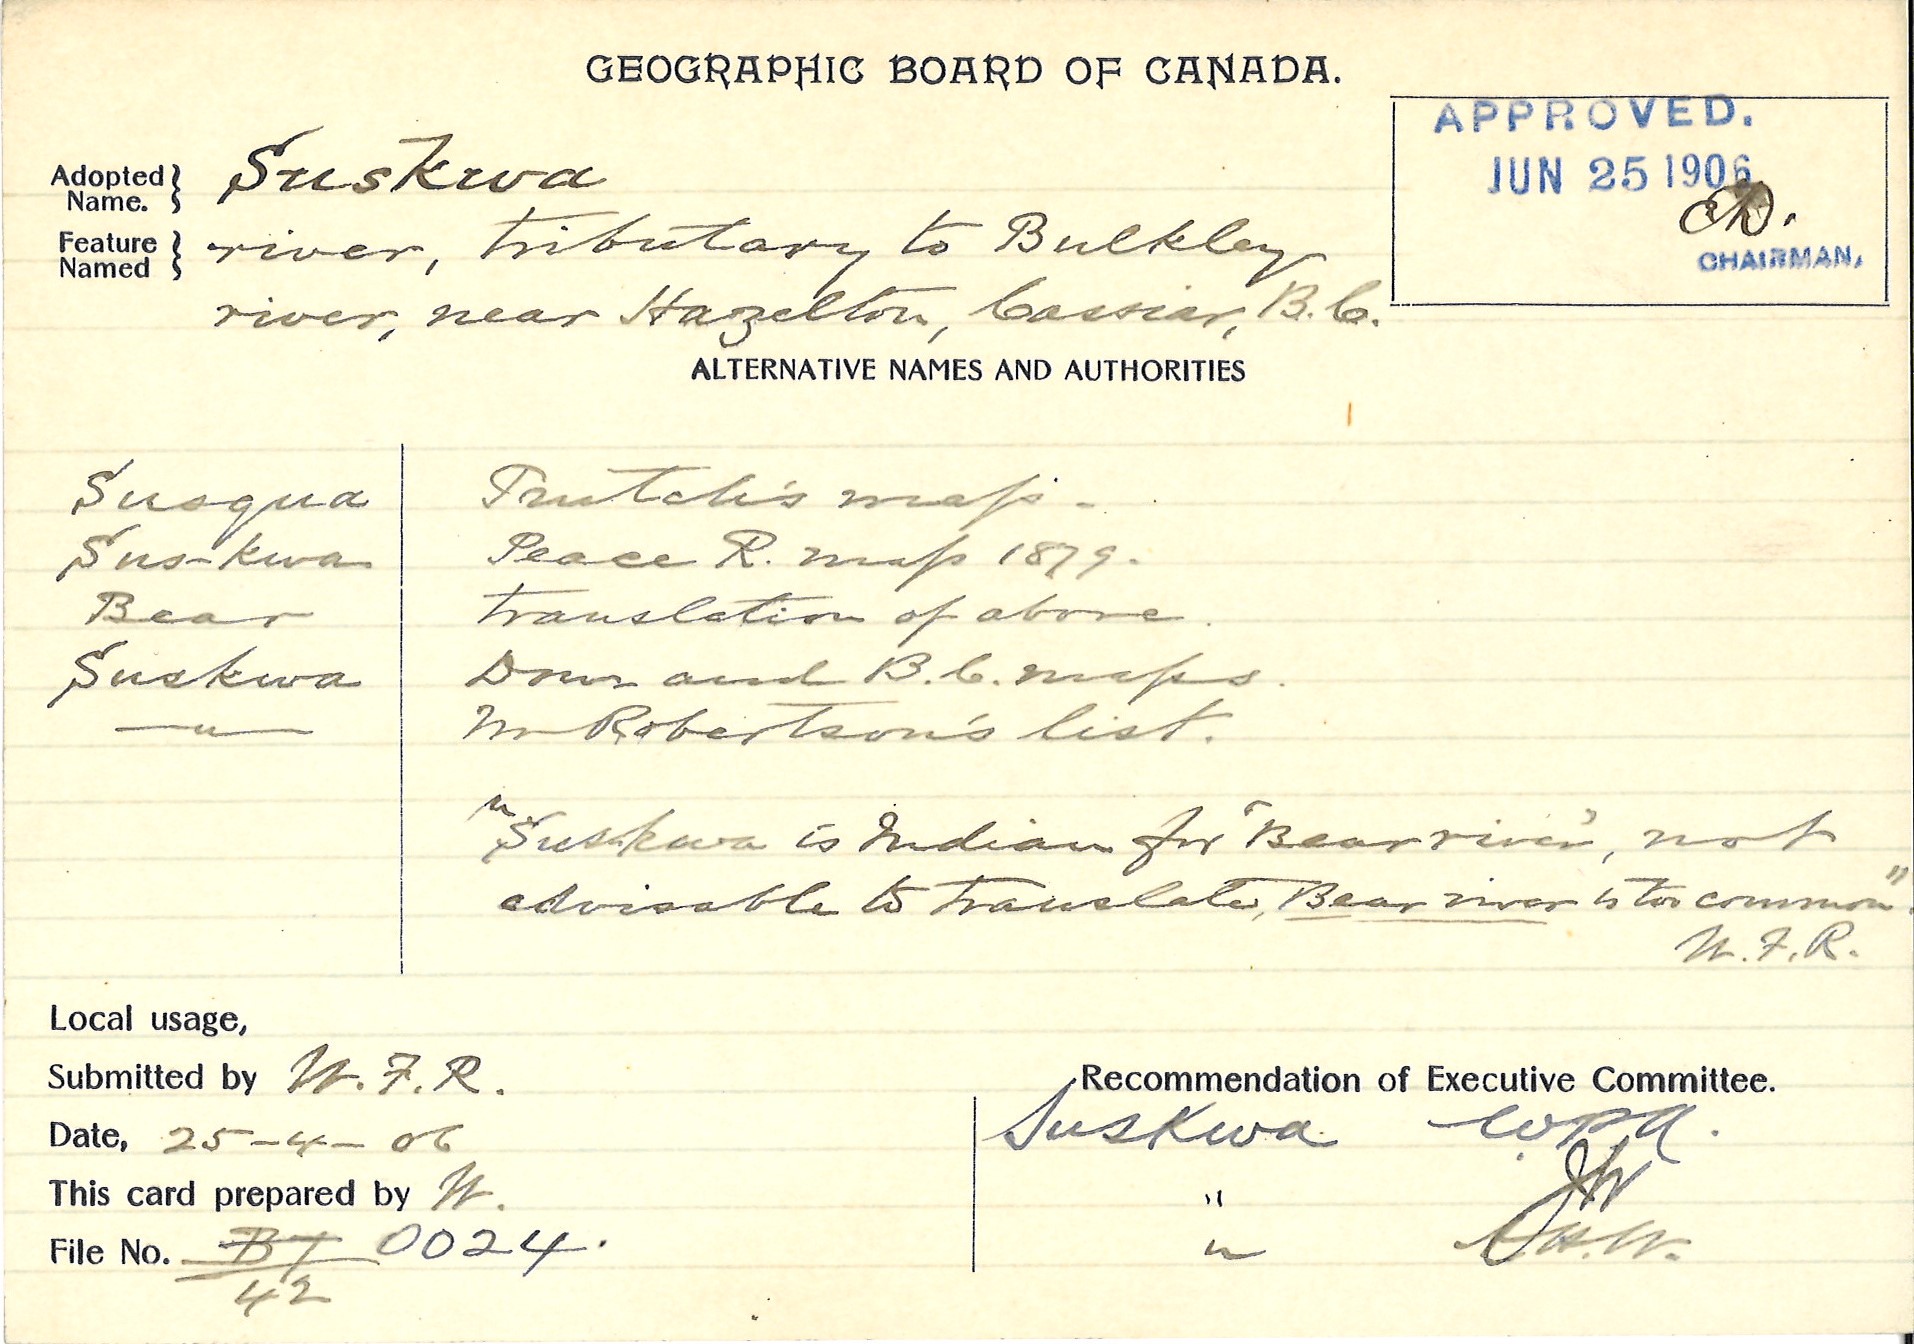 GEOGRAPHIC BOARD OF CANADA.
APPROVED.
JUN 25 1906
CHAIRMAN.
Adopted Name. Suskwa
Feature Named river, tributary to Bulkley
river, near Hazelton, Cassiar, B.C.
ALTERNATIVE NAMES AND AUTHORITIES
Susqua Trutch's map.
Sus-kwa Peace R. map 1879.
Bear translation of above.
Suskwa Dom and B.C. maps.
—"— Mr Robertson's list.
"Suskwa is Indian for "Bear river", not
advisable to translate, Bear river is too common".
W.F.R.
Local usage,
Submitted by W.F.R.
Date, 25-4-06
This card prepared by W.
File No. 0024.
42
Recommendation of Executive Committee.
Suskwa
"
"